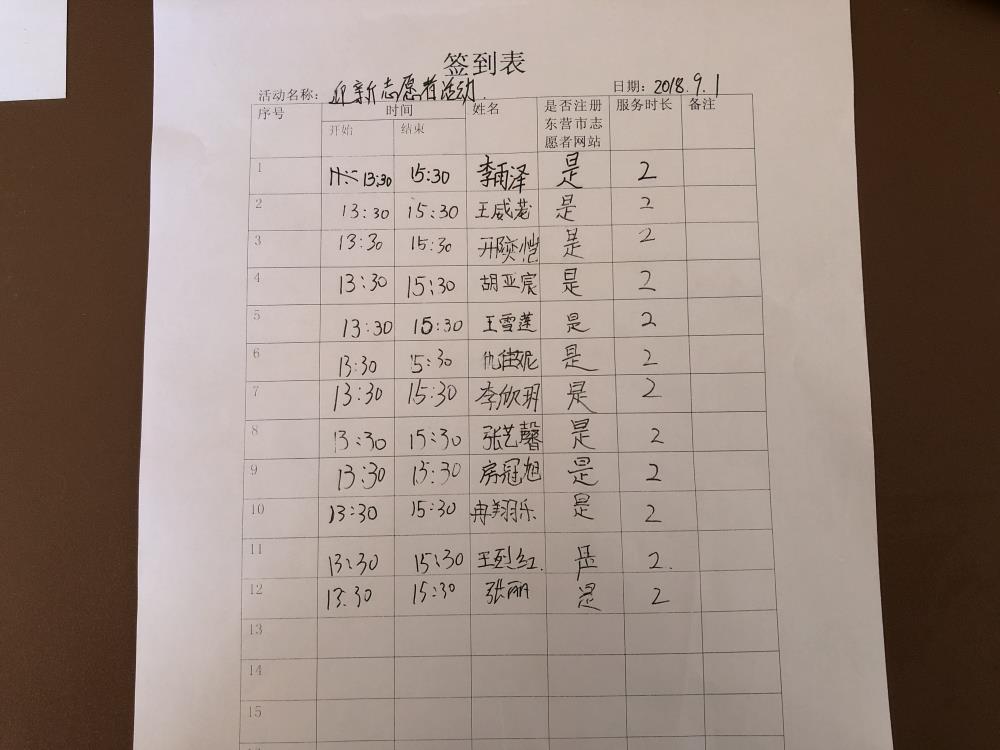 签到表
活动名称：迎新志愿者活动 日期：2018.9.1
序号 时间 姓名 是否注册东营市志愿者网站 服务时长 备注
开始 结束
1 13:30 15:30 李雨泽 是 2
2 13:30 15:30 王威 是 2
3 13:30 15:30 邢奕恺 是 2
4 13:30 15:30 胡亚宸 是 2
5 13:30 15:30 王雪莲 是 2
6 13:30 15:30 仇佳妮 是 2
7 13:30 15:30 李欣玥 是 2
8 13:30 15:30 张艺馨 是 2
9 13:30 15:30 房冠旭 是 2
10 13:30 15:30 冉翔乐 是 2
11 13:30 15:30 王烈红. 是 2.
12 13:30 15:30 张丽 是 2
13
14
15